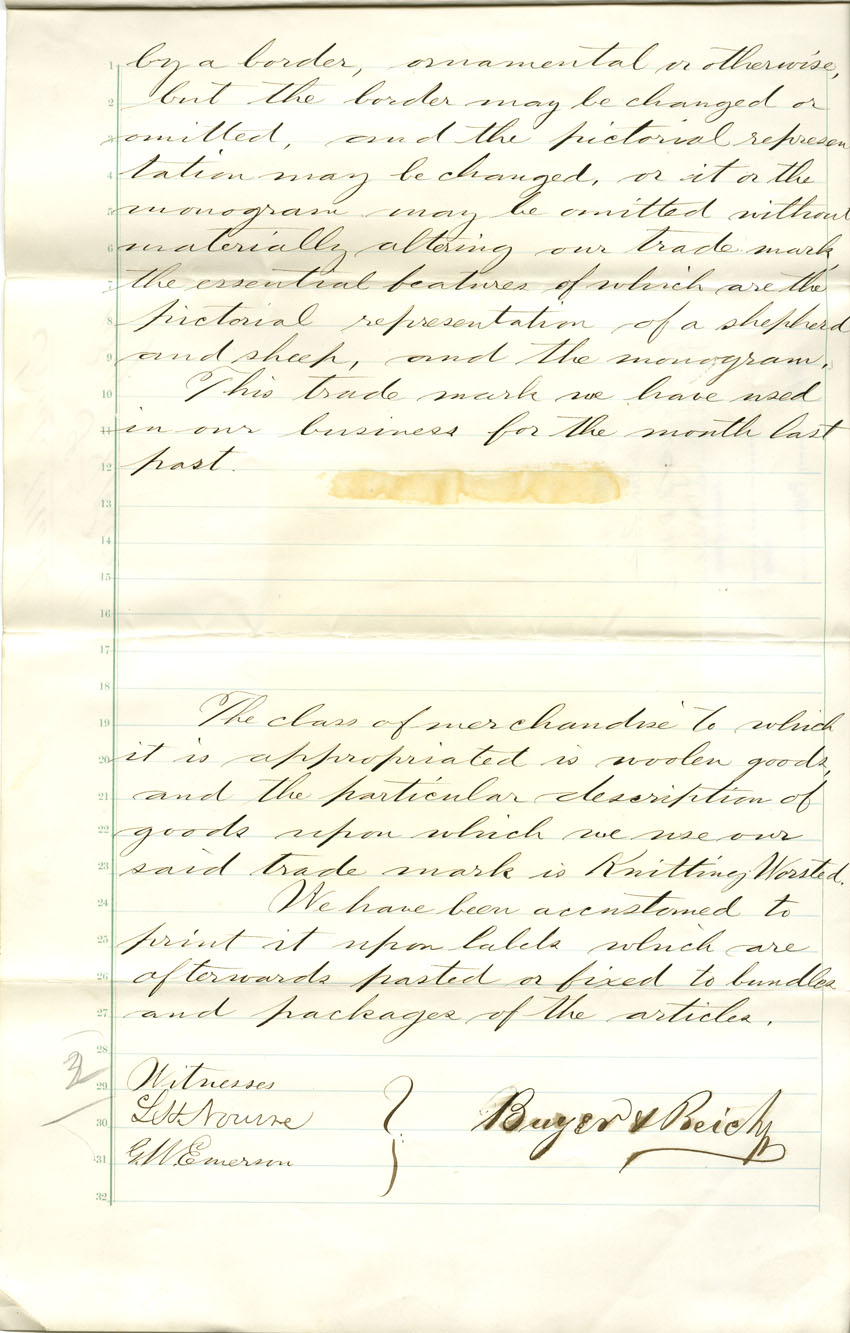 by a border, ornamental or otherwise,
but the border may be changed or
omitted, and the pictorial represen
tation may be changed, or it or the
monogram may be omitted without
materially altering our trade mark,
the essential features of which are the
pictorial representation of a shepherd
and sheep, and the monogram.
This trade mark we have used
in our business for the month last
past.
The class of merchandise to which
it is appropriated is woolen goods,
and the particular description of
goods upon which we use our
said trade mark is Knitting Worsted.
We have been accustomed to
print it upon labels which are
afterwards pasted or fixed to bundles
and packages of the articles.
Witnesses
L H Nourse
G W Emerson
Buyer & Reich
1
2
3
4
5
6
7
8
9
10
11
12
13
14
15
16
17
18
19
20
21
22
23
24
25
26
27
28
29
30
31
32